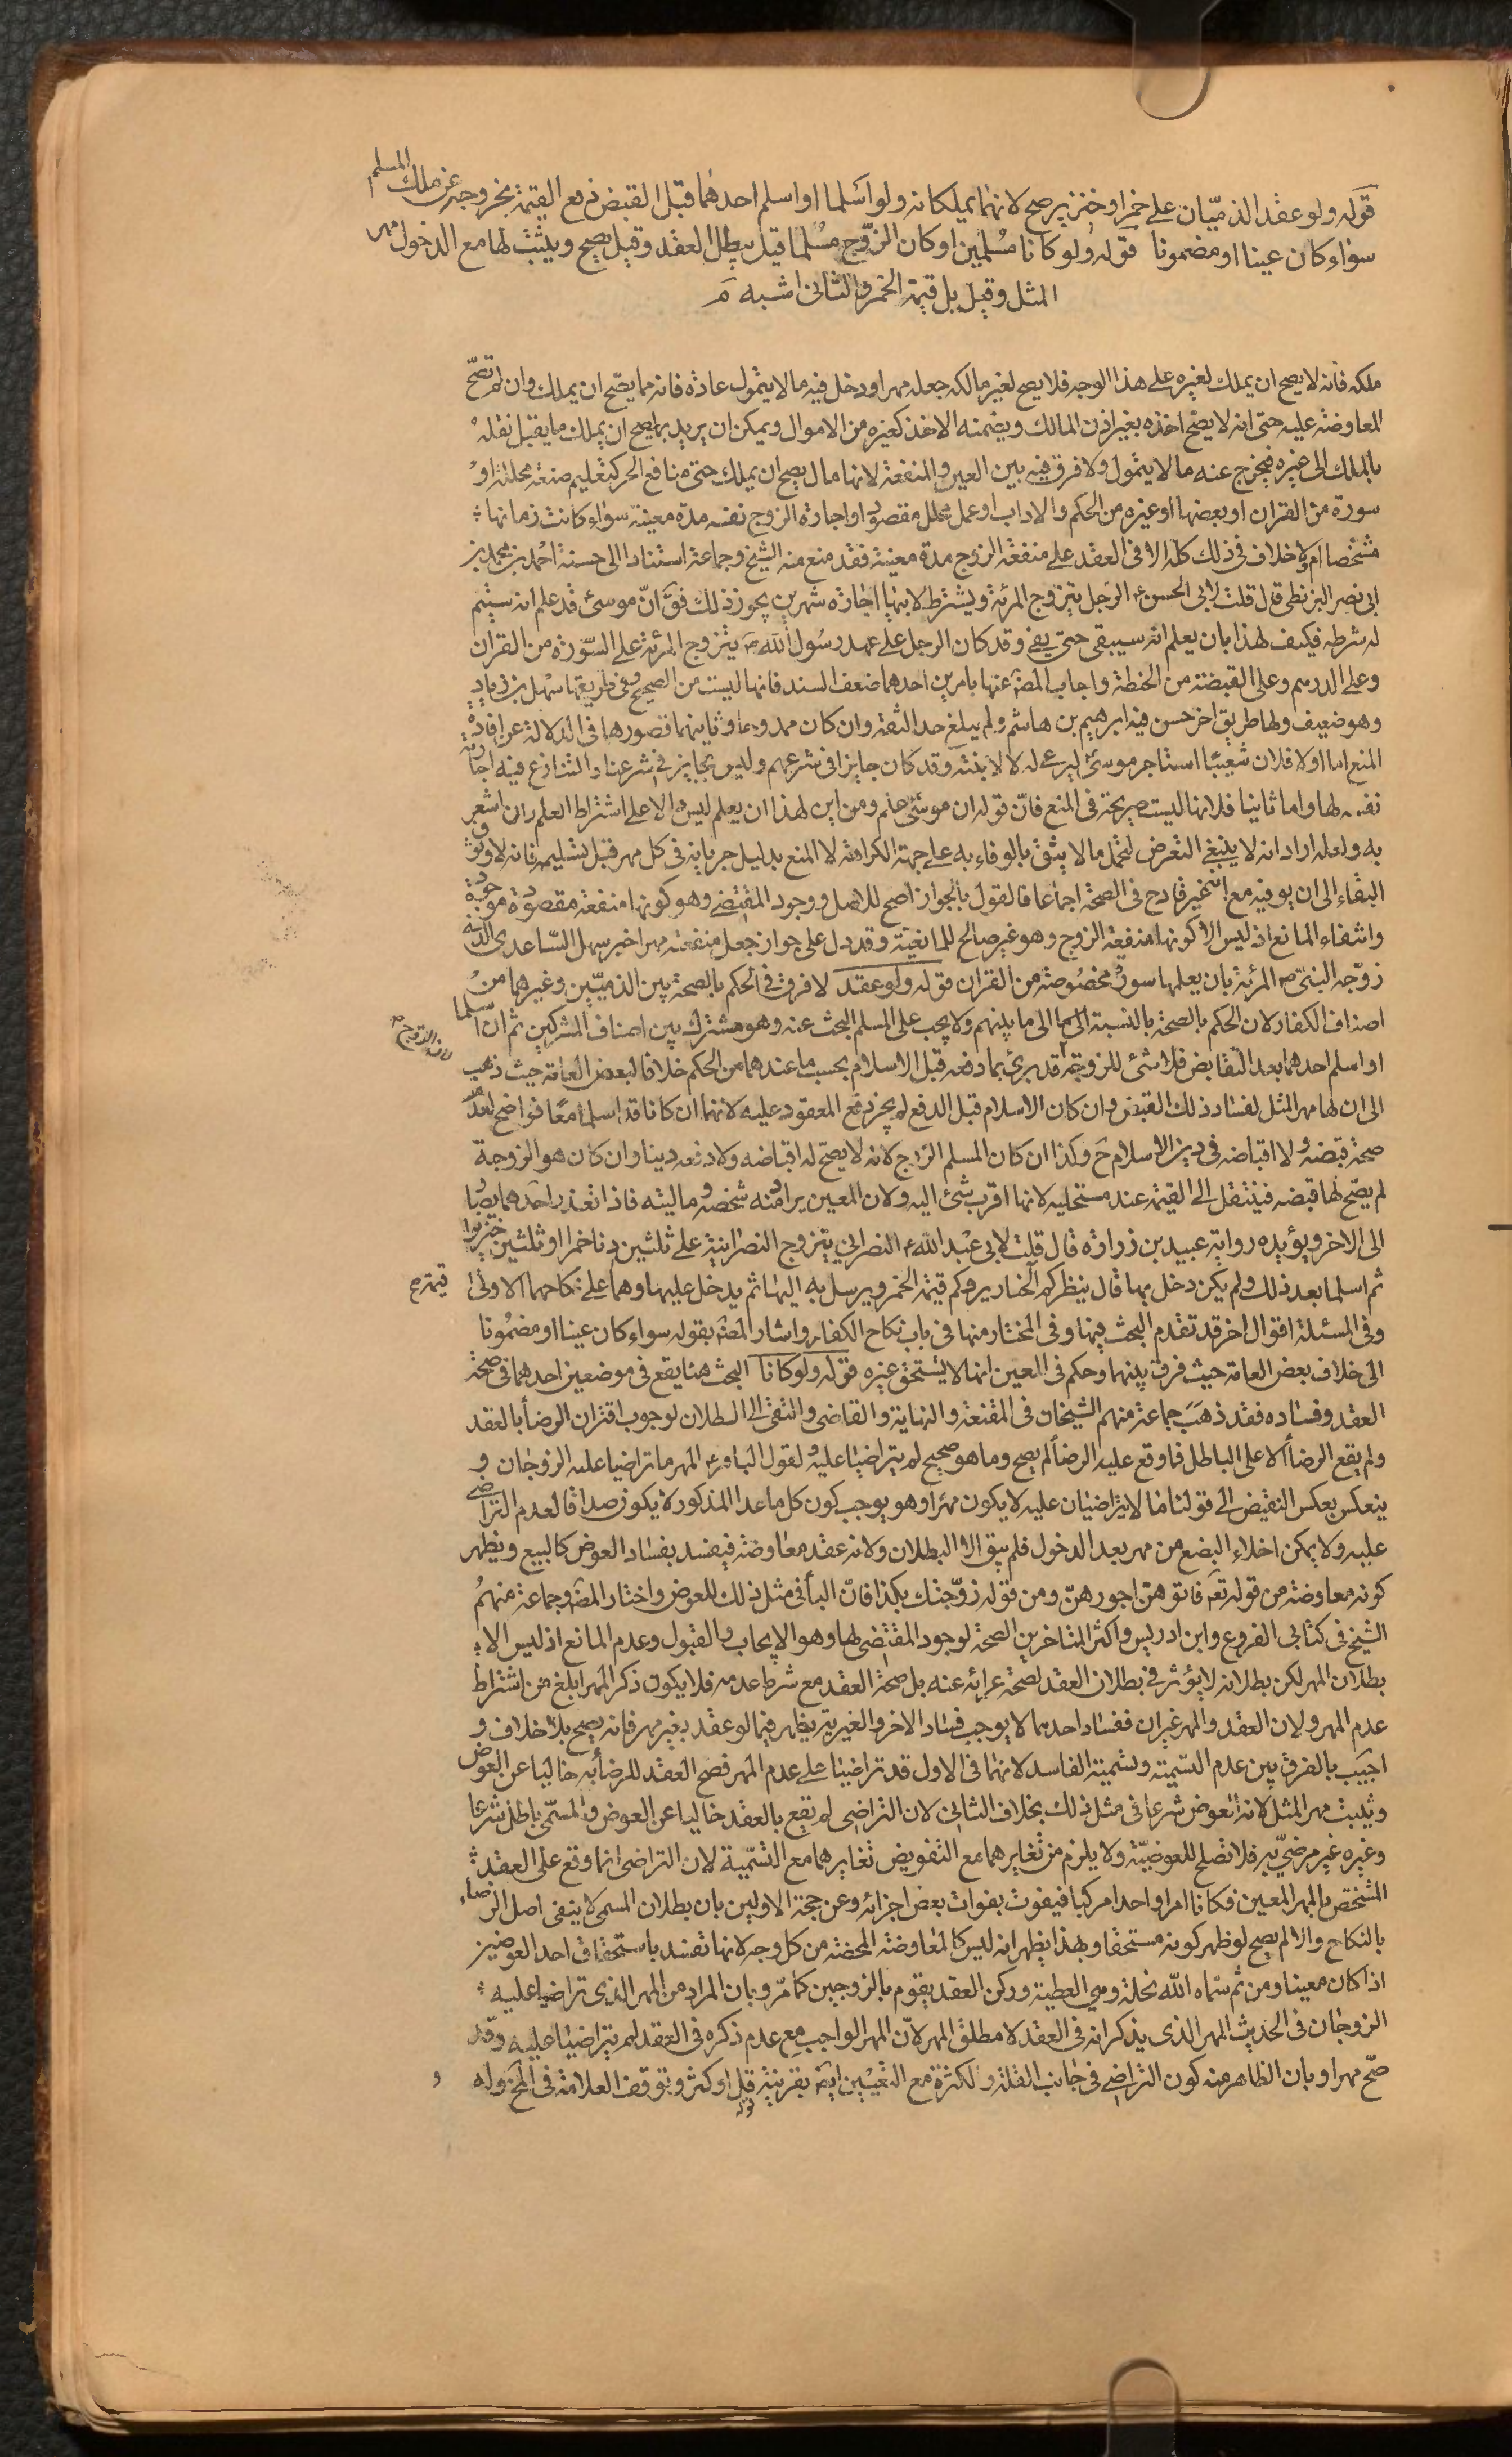 قوله ولو عقد الذميّان على خمر او خنزير صح لانهما يملكانه ولو اسلما او اسلم احدهما قبل القبض دفع القيمة لخروجه عن ملك المسلم
سواء كان عينا او مضمونا قوله ولو كانا مسلمين او كان الزوج مسلما قيل يبطل العقد وقيل يصح ويثبت لها مع الدخول مهر
المثل وقيل بل قيمة الخمر والثانى اشبه
ملكه فانه لا يصح ان يملك لغيره على هذا الوجه فلا يصح لغير مالكه جعله مهرا ودخل فيه ما لا يتمول عادة فانه مما يصّح ان يملك وان لم تصحّ
المعاوضة عليه حتى انه لا يصح اخذه بغير اذن المالك ويضمنه الاخذ كغيره من الاموال ويمكن ان يريد بما يصح ان يملك ما يقبل نقله
بالملك الى غيره فيخرج عنه ما لا يتمول ولا فرق فيه بين العين والمنفعة لانها مال يصح ان يملك حتى منافع الحر كتعليم صنعة محللة او
سورة من القران او بعضها او غيره من الحكم والاداب او عمل محلل مقصود او اجارة الزوج نفسه مدة معينة سواء كانت زمانها
مشخصا ام لا ولا خلاف فى ذلك كله الا فى العقد على منفعة الزوج مدة معينة فقد منع منه الشيخ وجماعة استنادا الى حسنة احمد بن محمد بن
ابى نصر البزنطى قال قلت لابى الحسن ع الرجل يتزوج المرئة ويشترط لابيها اجارة شهرين يجوز ذلك فق انّ موسى قد علم انه سيتم
له شرطه فكيف لهذا بان يعلم انه سيبقى حتى يفى وقد كان الرجل على عهد رسول الله ص يتزوج المرئة على السّورة من القران
وعلى الدرهم وعلى القبضة من الحنطة واجاب المصّ عنها بامرين احدهما ضعف السند فانها ليست من الصحيح وفى طريقها سهل بن زياد
وهو ضعيف ولها طريق اخر حسن فيه ابرهيم بن هاشم ولم يبلغ حد الثقة وان كان ممدوحا وثانيهما قصورها فى الدلالة عن افادة
المنع اما اولا فلان شعيبًا استاجر موسى ليرعى له لا لابنته وقد كان جايزا فى شرعهم وليس بجايز فى شرعنا والتنازع فيه اجارته
نفسه لها واما ثانيا فلانها ليست صريحة فى المنع فانّ قوله ان موسى علم ومن اين لهذا ان يعلم ليس الا على اشتراط العلم وان اشعر
به ولعله اراد انه لا ينبغى التعرض لتحمل ما لا يثق بالوفاء به على جهة الكراهة لا المنع بدليل جريانه فى كل مهر قبل تسليمه فانه لا وثوق
البقاء الى ان يوفيه مع انه غير قادح فى الصحة اجماعا فالقول بالجواز اصح للاصل ووجود المقتضى وهو كونها منفعة مقصودة موجودة
وانتفاء المانع اذ ليس الا كونها منفعة الزوج وهو غير صالح للمانعية وقد دل على جواز جعل منفعته مهرا خبر سهل السّاعدى الذى
زوّجه النبىّ ص المرئة بان يعلمها سورة مخصوصة من القران قوله ولو عقد لا فرق فى الحكم بالصحة بين الذميّين وغيرهما من
اصناف الكفار لان الحكم بالصحة بالنسبة اليهما الى ما بينهم ولا يجب على المسلم البحث عنه وهو مشترك بين اصناف المشركين ثم ان اسلما
او اسلم احدهما بعد التقابض فلا شئ للزوجة لان الزوج قد برئ بما دفعه قبل الاسلام بحسب ما عندهما من الحكم خلافا لبعض العامة حيث ذهب
الى ان لها مهر المثل لفساد ذلك القبض وان كان الاسلام قبل الدفع لم يجز دفع المعقود عليه لانهما ان كانا قد اسلما معًا فواضح لعدم
صحة قبضه ولا اقباضه فى دين الاسلام ح وكذا ان كان المسلم الزوج لانه لا يصحّ له اقباضه ولا دفعه دينا وان كان هو الزوجة
لم يصّح لها قبضه فينتقل الى القيمة عند مستحليه لانها اقرب شئ اليه ولان المعين يراد منه شخصه وماليته فاذا تعذر احدهما يصار
الى الاخر ويؤيده رواية عبيد بن زرارة قال قلت لابى عبد الله ع النصرانى يتزوج النصرانية على ثلثين دنا خمرا او ثلثين خنزيرا
ثم اسلما بعد ذلك ولم يكن دخل بها قال ينظر كم قيمة الخنازير وكم قيمة الخمر ويرسل به اليها ثم يدخل عليها وهما على نكاحهما الاول
وفى المسئلة اقوال اخر قد تقدم البحث فيها وفى المختار منها فى باب نكاح الكفار واشار المصّ بقوله سواء كان عينا او مضمونا
الى خلاف بعض العامة حيث فرق بينهما وحكم فى المعين انها لا يستحق غيره قوله ولو كانا البحث هنا يقع فى موضعين احدهما فى صحة
العقد وفساده فقد ذهب جماعة منهم الشيخان فى المقنعة والنهاية والقاضى والتقى الى البطلان لوجوب اقتران الرضا بالعقد
ولم يقع الرضا الا على الباطل فما وقع عليه الرضا لم يصح وما هو صحيح لم يتراضيا عليه ولقول الباقر ع المهر ما تراضيا عليه الزوجان و
ينعكس بعكس النقيض الى قولنا ما لا يتراضيان عليه لا يكون مهرا وهو يوجب كون كل ما عدا المذكور لا يكون صداقا لعدم التراضى
عليه ولا يمكن اخلاء البضع من مهر بعد الدخول فلم يبق الا البطلان ولانه عقد معاوضة فيفسد بفساد العوض كالبيع ويظهر
كونه معاوضة من قوله تع فاتوهنّ اجورهنّ ومن قوله زوّجتك بكذا فانّ البأ فى مثل ذلك للعوض واختار المصّ وجماعة منهم
الشيخ فى كتابى الفروع وابن ادريس واكثر المتاخرين الصحة لوجود المقتضى لها وهو الايجاب والقبول وعدم المانع اذ ليس الا
بطلان المهر لكن بطلانه لا يؤثر فى بطلان العقد لصحة عرائه عنه بل صحة العقد مع شرط عدمه فلا يكون ذكر المهر ابلغ من اشتراط
عدم المهر ولان العقد والمهر غيران ففساد احدهما لا يوجب فساد الاخر والغيرية يظهر فيما لو عقد بغير مهر فانه يصح بلا خلاف و
اجيب بالفرق بين عدم التسمية وتسمية الفاسد لانهما فى الاول قد تراضيا على عدم المهر فصح العقد للرضا به خاليا عن العوض
ويثبت مهر المثل لانه العوض شرعا فى مثل ذلك بخلاف الثانى لان التراضى لم تقع بالعقد خاليا عن العوض والمسمّى باطل شرعا
وغيره غير مرضىّ به فلا تصلح للعوضيّة ولا يلزم من تغايرهما مع التفويض تغايرهما مع التسّمية لان التراضى انما وقع على العقد
المشخص بالمهر المعين فكانا امرا واحدا مركبا فيفوت بفوات بعض اجزائه وعن حجة الاولين بان بطلان المسمى لا ينفى اصل الرضاء
بالنكاح والا لم يصح لو ظهر كونه مستحقا وبهذا يظهر انه ليس كالمعاوضة المحضة من كل وجه لانها تفسد باستحقاق احد العوضين
اذا كان معينا ومن ثم سّماه الله نحلة وهى العطية وركن العقد يقوم بالزوجين كما مرّ وبان المراد من المهر الذى تراضيا عليه
الزوجان فى الحديث المهر الذى يذكرانه فى العقد لا مطلق المهر لانّ المهر الواجب مع عدم ذكره فى العقد لم يتراضيا عليه وقد
صحّ مهرا وبان الظاهر منه كون التراضى فى جانب القلة والكثرة مع التعيين ايضا بقرينة قوله قل او كثر وتوقف العلامة فى المخ وله
و